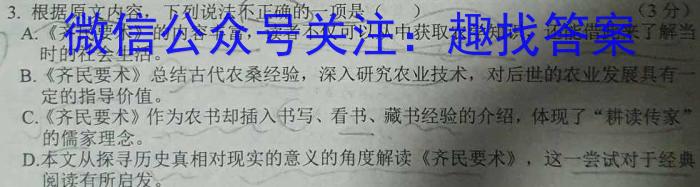 3. 根据原文内容，下列说法不正确的一项是（ ）（3分）
微信公众号关注：趣找答案
A.《齐民要术》的内容丰富，读者不仅可以从中获取农学知识，还能借此来了解当
时的社会生活。
B.《齐民要术》总结古代农桑经验，深入研究农业技术，对后世的农业发展具有一
定的指导价值。
C.《齐民要术》作为农书却插入书写、看书、藏书经验的介绍，体现了“耕读传家”
的儒家理念。
D.本文从探寻历史真相对现实的意义的角度解读《齐民要术》，这一尝试对于经典
阅读有所启发。